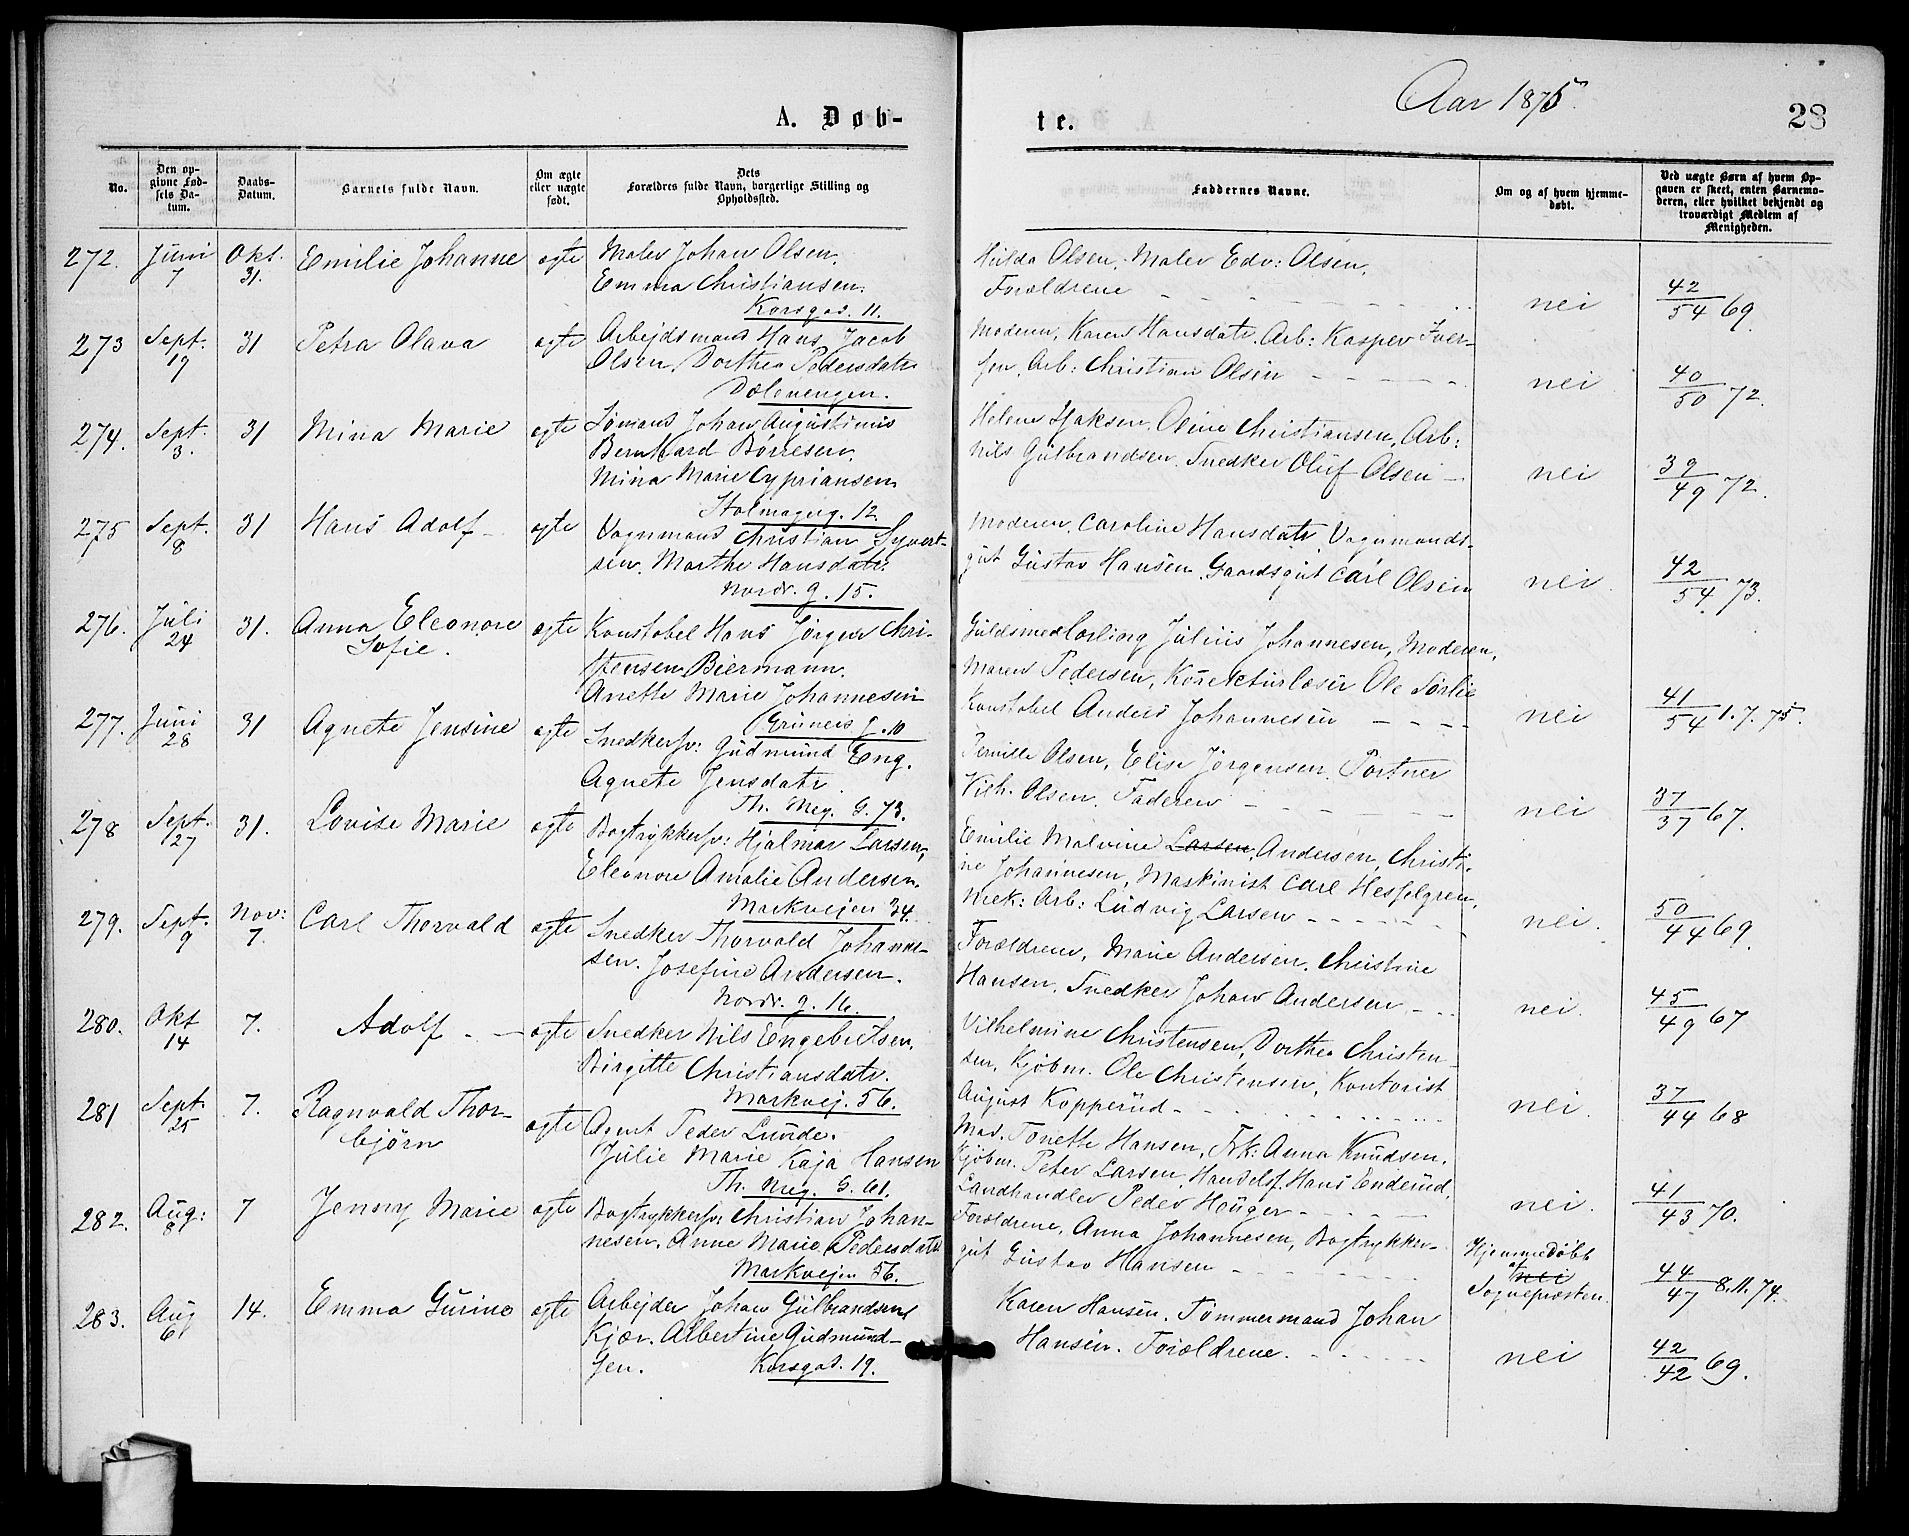 A. Døb-
No.
Den op-
givne Fød-
sels Da-
tum.
Daabs-
Datum.
Barnets fulde Navn.
Om ægte
eller uægte
født.
Dets
Forældres fulde Navn, borgerlige Stilling og
Opholdssted.
272. Juni 7 Okt. 31. Emilie Johanne ægte Maler Johan Olsen.
Emma Christiansen.
Korsgad. 11.
273 Sept. 19 31 Petra Olava ægte Arbejdsmand Hans Jacob
Olsen, Dorthea Pedersdatr
Dælenengen.
274. Sept. 3. 31 Mina Marie ægte Sømand Johan Augustinus
Bernhard Børresen.
Mina Marie Cypriansen
Holmagerg. 12.
275 Sept. 8 31 Hans Adolf - ægte Vognmand Christian Syvert-
sen. Marthe Hansdatr.
Nordr. g. 15.
276. Juli 24 31. Anna Eleonore
Sofie.
ægte Konstabel Hans Jørgen Chri-
stensen Biermann.
Anette Marie Johannesen
Grüners g. 10
277. Juni 28 31 Agnete Jensine ægte Snedkersv: Gudmund Eng.
Agnete Jensdatr.
Th. Meg. G. 73.
278 Sept. 27 31. Lovise Marie ægte Bogtrykkersv: Hjalmar Larsen,
Eleonore Amalie Andersen.
Markvejen 34.
279. Sept. 9 Nov: 7. Carl Thorvald ægte Snedker Thorvald Johanne-
sen. Josefine Andersen.
Nordr. g. 16.
280. Okt 14 7. Adolf - - ægte Snedker Nils Engebretsen.
Birgitte Christiansdatr.
Markvej. 56.
281 Sept. 25 7. Ragnvald Thor-
bjørn
ægte Agent Peder Lunde.
Julie Marie Kaja Hansen
Th. Meg. G. 61.
282. Aug: 8 7 Jenny Marie ægte Bogtrykkersv: Christian Johan-
nesen. Anne Marie Pedersdatr
Markvejen 56.
283. Aug 6 14. Emma Gurine ægte Arbejder Johan Gulbrandsen
Kjær. Albertine Gudmund-
sen. Korsgad. 19.
te.
Aar 1875.
28
Faddernes Navne.
Om og af hvem hjemme-
døbt.
Ved uægte Børn af hvem Op-
gaven er skeet, enten Barnemo-
deren, eller hvilket bekjendt og
troværdigt Medlem af
Menigheden.
Hulda Olsen, Maler Edv: Olsen,
Forældrene - - - nei 42/54 69.
Moderen, Karen Hansdatr. Arb: Kasper Iver-
sen, Arb: Christian Olsen - - - nei. 40/50 72.
Helene Isaksen, Oline Christiansen, Arb:
Nils Gulbrandsen. Snedker Oluf Olsen - nei 39/49 72.
Moderen, Caroline Hansdatr, Vognmands-
gut Gustav Hansen, Gaardsgut Carl Olsen nei. 42/54 73.
Guldsmedlærling Julius Johannesen, Moderen,
Maren Pedersen, Korrekturlæser Ole Sørlie
Konstabel Anders Johannesen - - - nei 41/54 1.7.75.
Pernille Olsen, Elise Jørgensen, Portner
Vilh. Olsen. Faderen - - - nei 37/37 67.
Emilie Malvine Larsen, Andersen, Christi-
ne Johannesen, Maskinist Carl Hesselgren,
Mek: Arb: Ludvig Larsen - - - nei. 50/44 69.
Forældrene, Marie Andersen, Christine
Hansen. Snedker Johan Andersen - - nei. 45/49 67
Vilhelmine Christensen, Dorthea Christen-
sen, Kjøbm. Ole Christensen, Kontorist
August Kopperud - - - nei. 37/44 68
Mad. Tonette Hansen, Frk: Anna Knudsen,
Kjøbm. Peter Larsen, Handelsf. Hans Enderud,
Landhandler Peder Houger - - - nei. 41/43 70.
Forældrene, Anna Johannesen, Bogtrykker-
gut Gustav Hansen - - -
Hjemmedøbt
af nei
Sognepresten.
44/47 8.11.74.
Karen Hansen. Tømmermand Johan
Hansen. Forældrene. - - - nei 42/42 69.